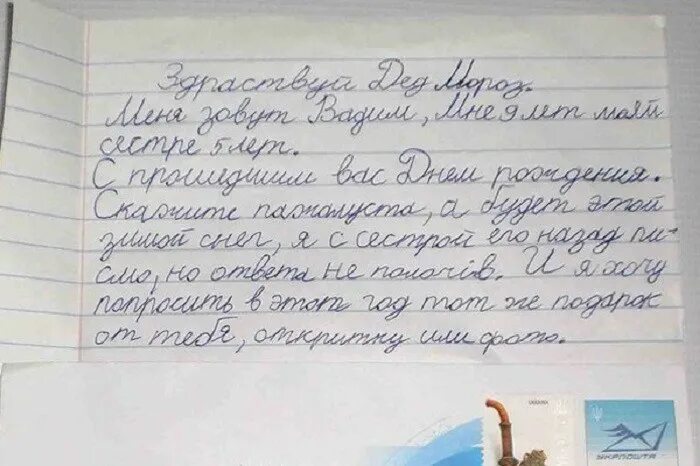 Здраствуй Дед Мороз.
Меня зовут Вадим, Мне 9 лет маей
сестре 5 лет.
С прошедшим вас Днем рождения.
Скажите пажалуста, а будет этой
зимой снег, я с сестрой его назад пи-
смо, но ответа не палочив. И я хочу
попросить в этот год тот же подарок
от тебя, открытку или фото.
УКРПОШТА